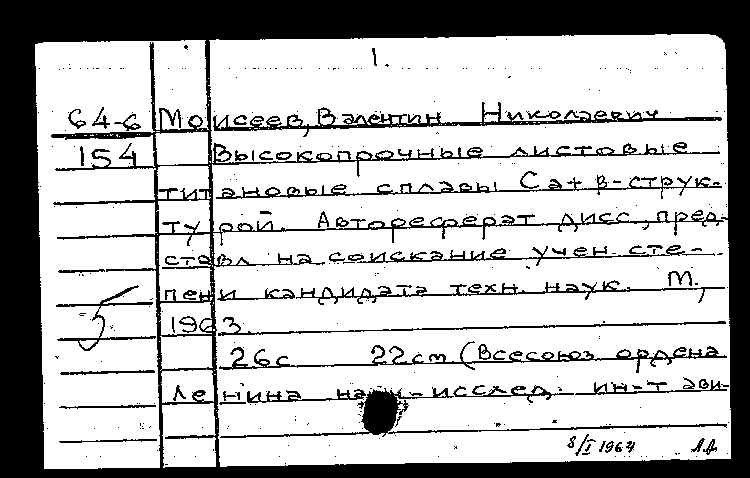 1.
64-6 Моисеев, Валентин Николаевич
154 Высокопрочные листовые
титановые сплавы С а+в-струк-
турой. Автореферат дисс, пред-
ставл на соискание учен сте-
пени кандидата техн. наук. М.,
5 1963.
26с 22см (Всесоюз ордена
Ленина научн-исслед. ин-т ави-
8/I 1964